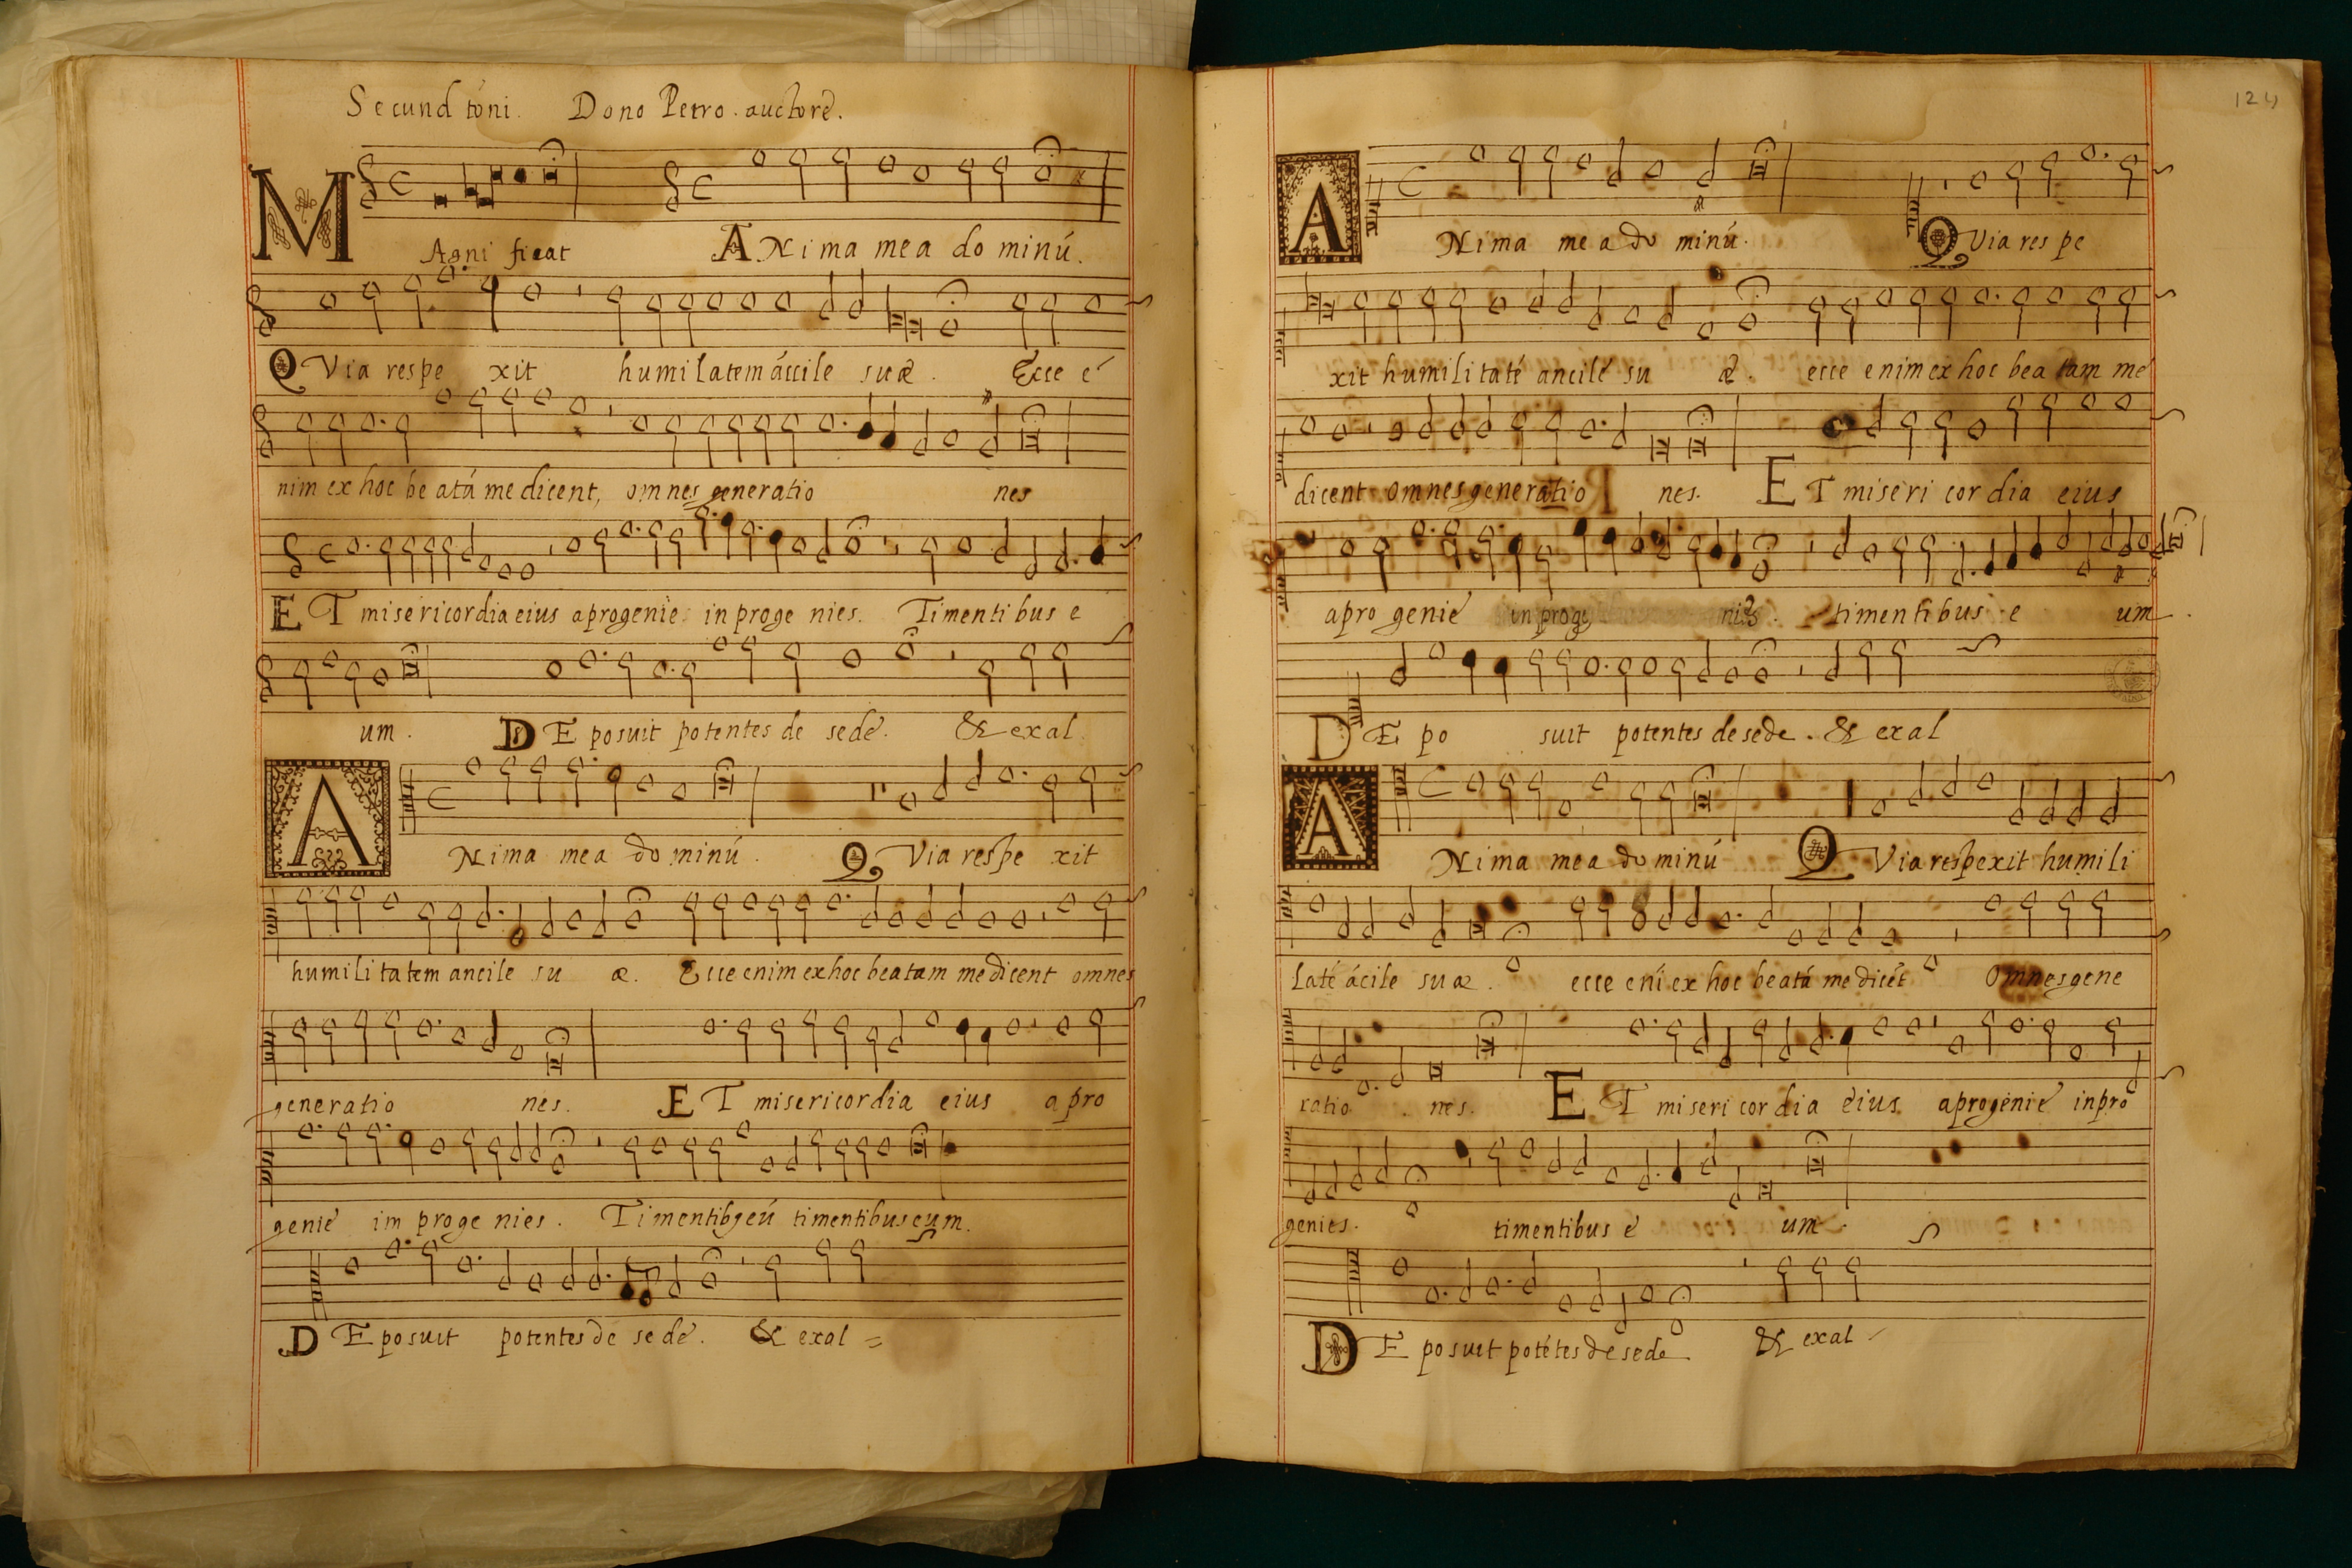 Secund tóni. Dono Petro. auctore.
MAgni ficat ANima mea do minú.
QVia respe xit humilatem áccile suæ. Ecce é
nim ex hoc be atá me dicent, omnes generatio nes
ET misericordia eius aprogenie in proge nies. Timenti bus e
um. DE posuit potentes de sede. & exal
ANima mea do minú. QVia respe xit
humilitatem ancile su æ. Ecce enim ex hoc beatam me dicent omnes
generatio nes. ET misericordia eius a pro
genie im proge nies. Timentibʒeú timentibus eum.
DE posuit potentes de sede. & exal
124
ANima me a do minú. QVia res pe
xit humilitaté ancilé su æ. ecce enim ex hoc bea tam me
dicent omnes generatio nes. ET miseri cor dia eius
apro genie in proge nies. timentibus e um.
DE po suit potentes de sede. & exal
ANima mea do minú QVia respexit humili
taté ácile suæ. ecce ení ex hoc beatá me dicét Omnes gene
ratio nes. ET miseri cor dia eius aprogenie inpro
genies. timentibus e um.
DE posuit potétes de sede & exal